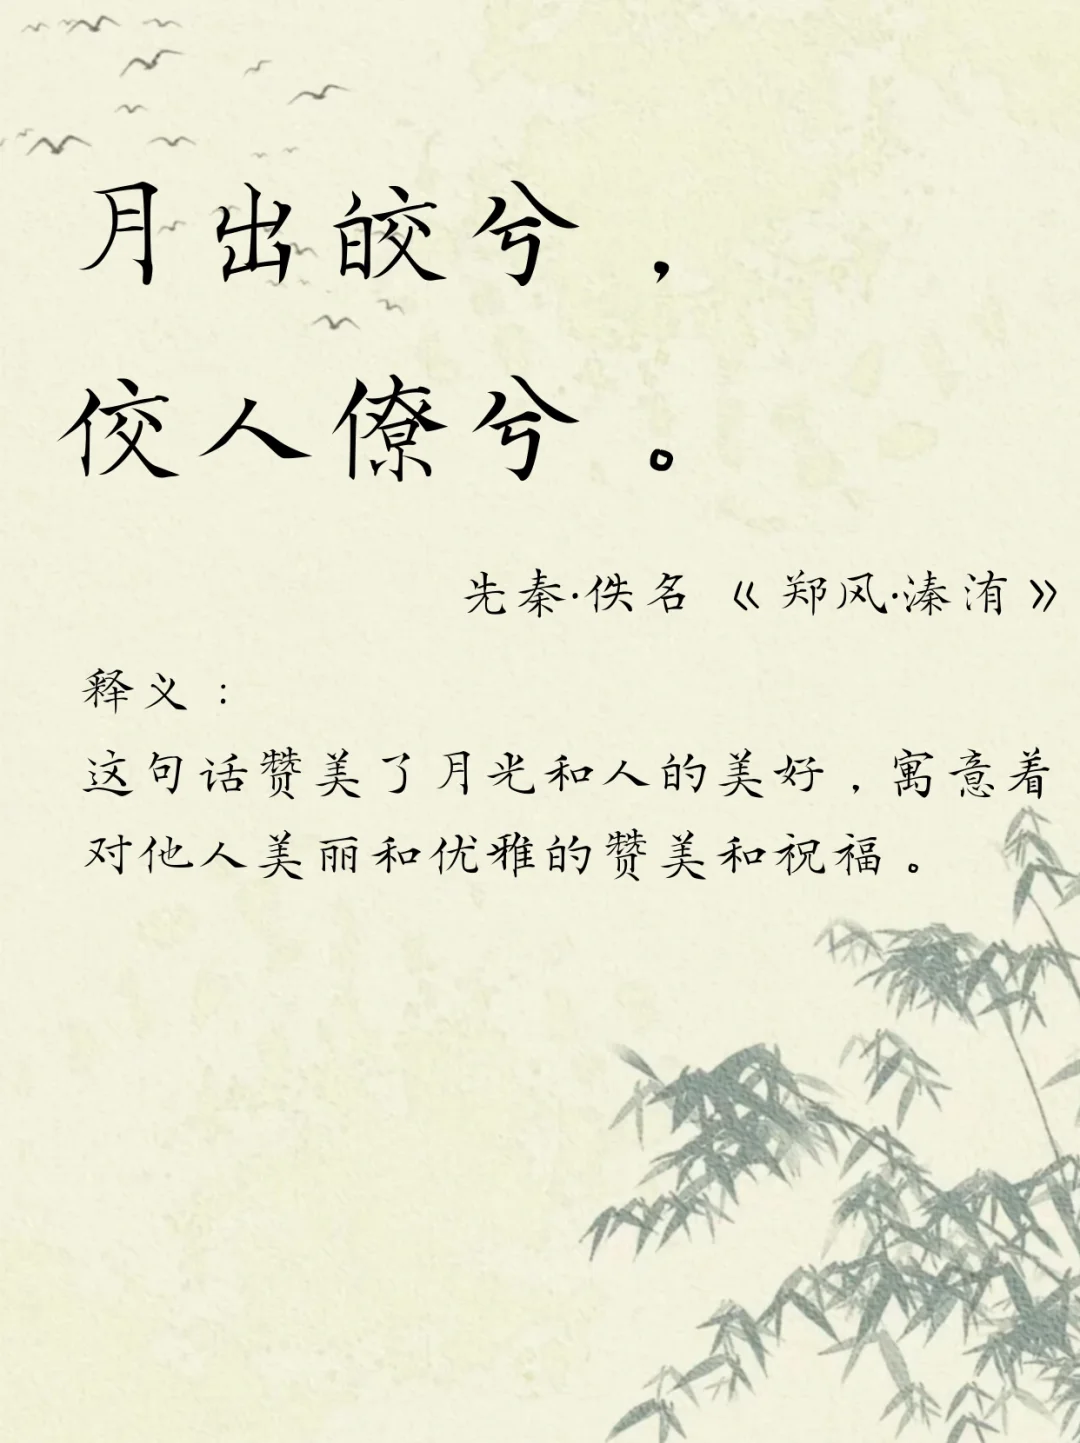 月出皎兮，
佼人僚兮。
先秦·佚名《郑风·溱洧》
释义：
这句话赞美了月光和人的美好，寓意着
对他人美丽和优雅的赞美和祝福。